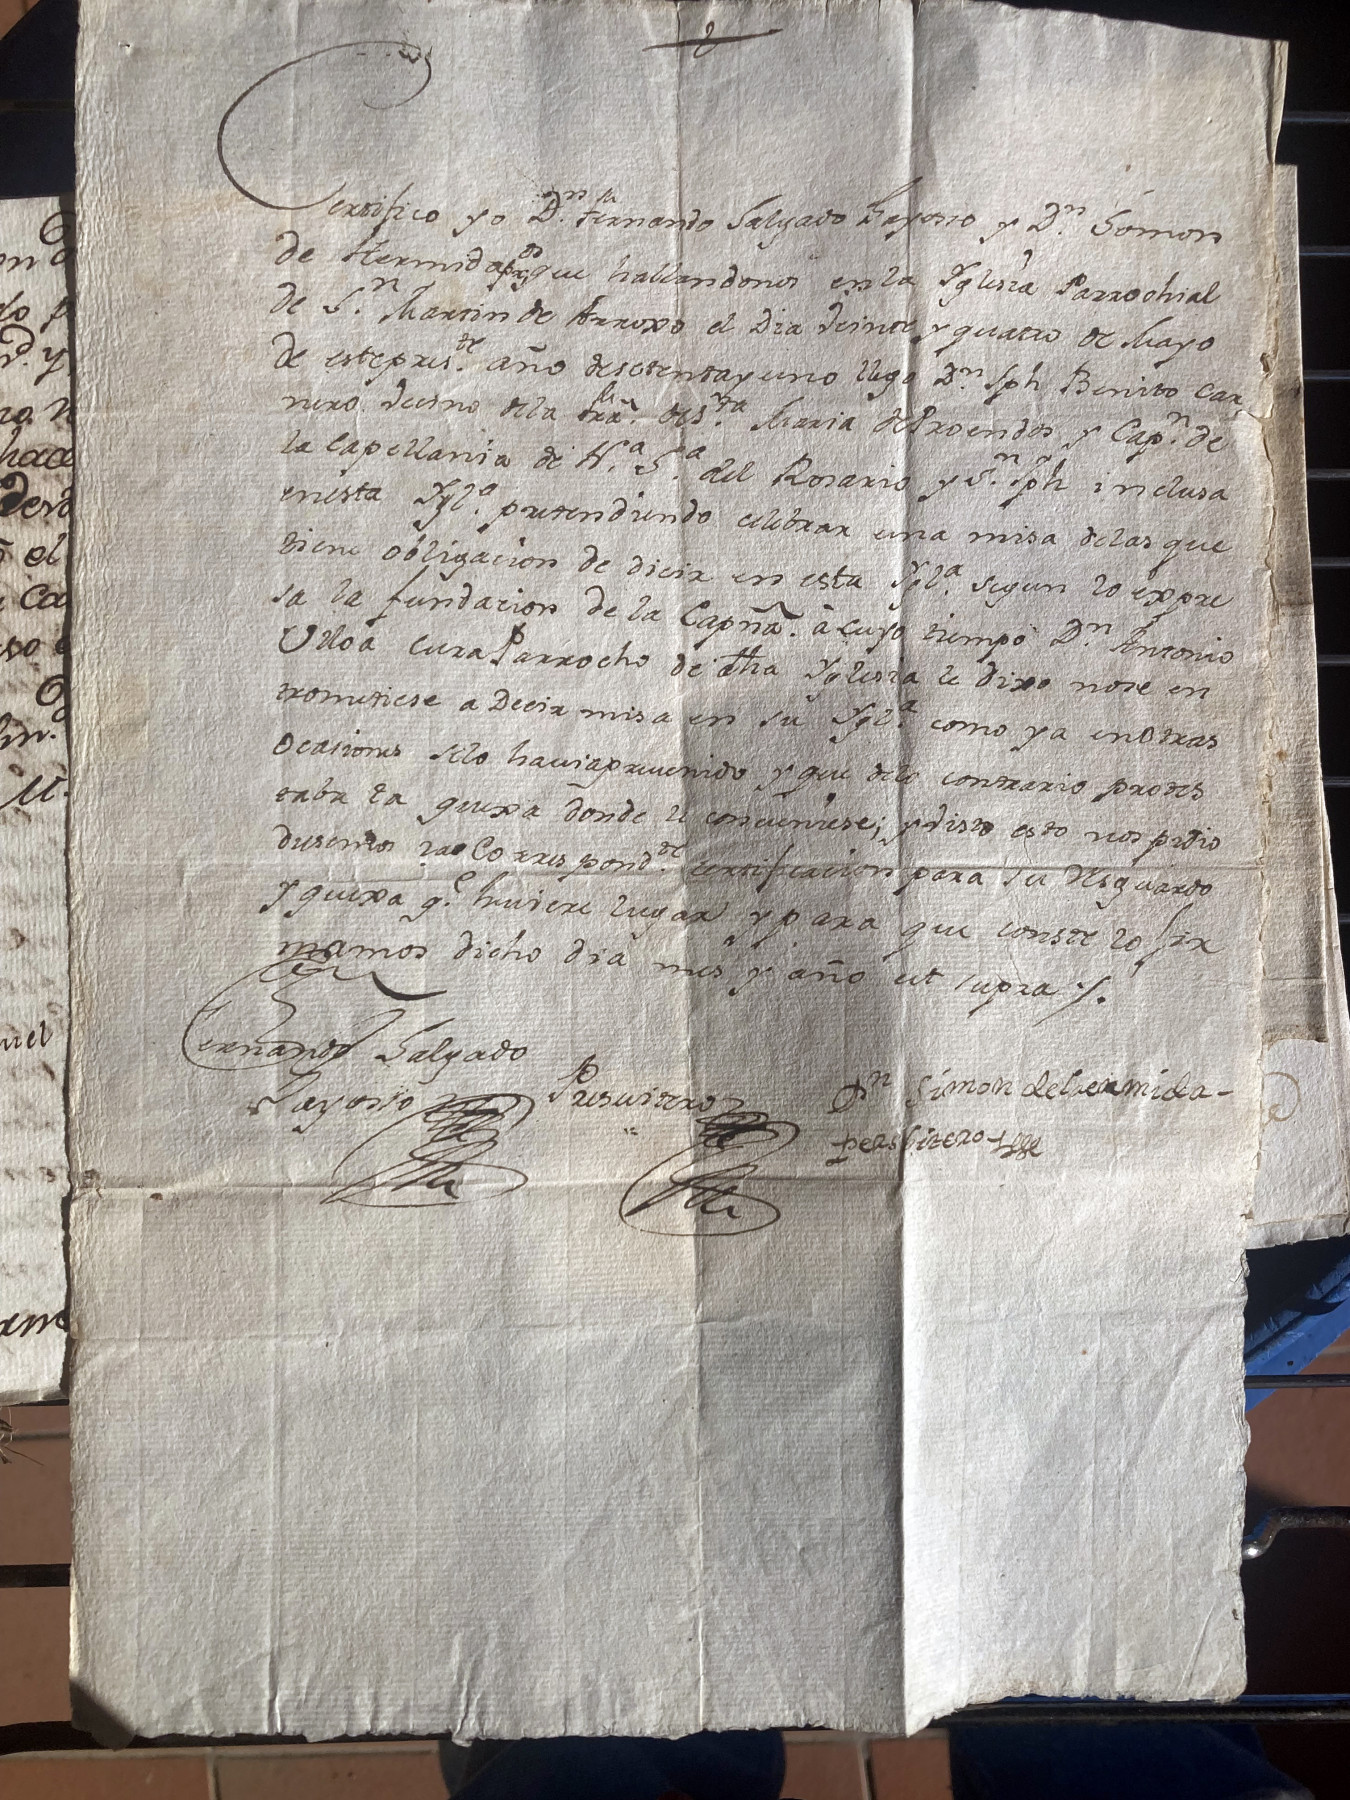 Certifico yo D.n Fernando Salgado Gayoso y D.n Simon
de Hermida pros que hallandonos en la Yglesia Parrochial
de S.n Martin de Arroxo el Dia veinte y quatro de Mayo
de este pres.te año desetenta y uno llego D.n Jph Benito Car
nero vecino dela frã. de S.ta Maria de Proendos y Cap.n de
la Capellania de N.a S.a del Rosario y S.n Jph inclusa
enesta Ygl.a pretendiendo celebrar una misa delas que
tiene obligacion de dicir en esta Ygl.a segun lo expre
sa la fundacion de la Capñã. â cuyo tiempo D.n Antonio
Ulloa cura Parrocho de dha Yglesia le dixo nose en
trometiese a Decir misa en su Ygl.a como ya en otras
Ocasiones selo haviaprevenido y que delo contrario protes
taba la quexa donde le conviniese; y visto esto nos pidio
diesemos la Correspond.te certificacion para su resguardo
y quexa q.e huviere lugar y para que conste lo fir
mamos dicho dia mes y año ut supra ./.
Fernando Salgado
Gayosso Presvitero
D.n Simon de hermida-
persbitero
on
y
hace
el
ca
uel